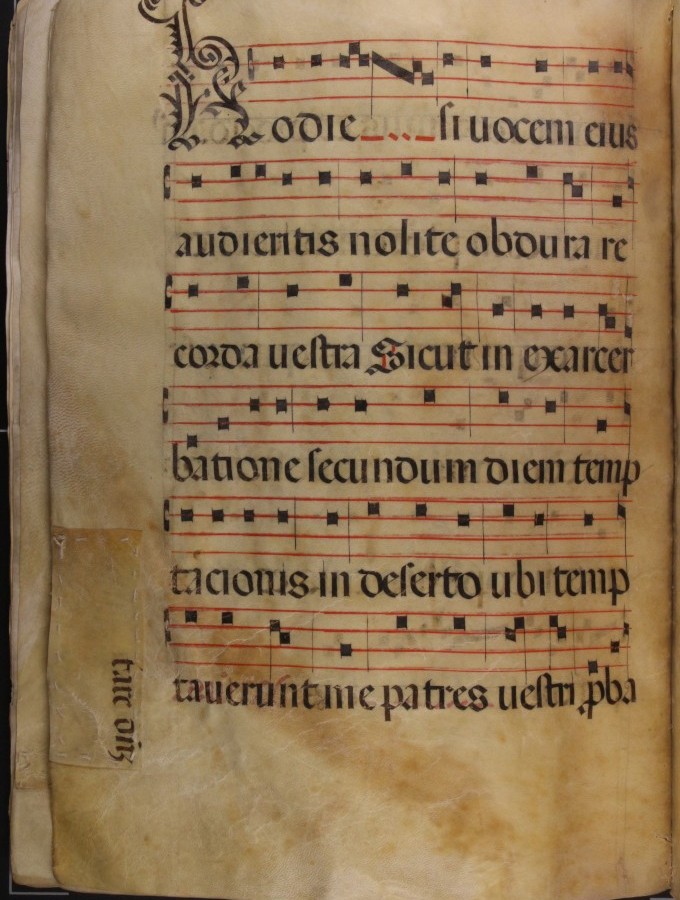 Hodie si uocem eius
audientis nolite obdura re
corda uestra Sicut in exarcer
batione secundum diem temp
tacionis in deserto ubi temp
tauerunt me patres uestri ꝓba